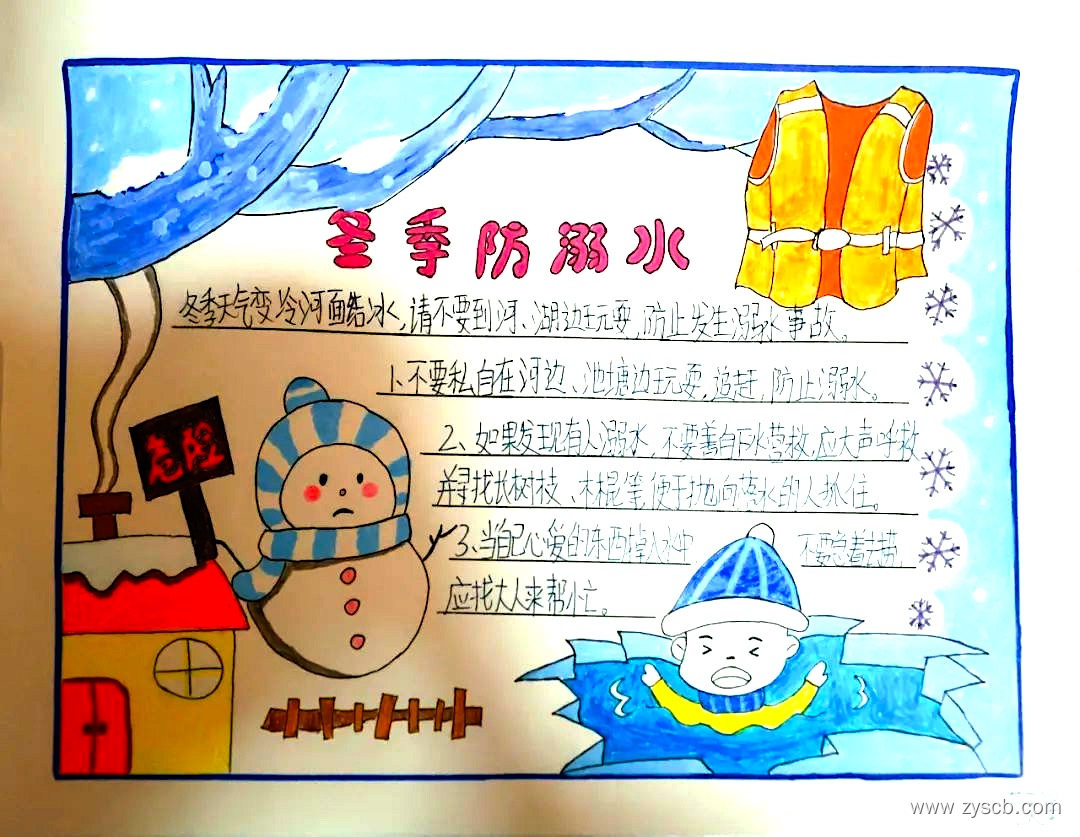 冬季防溺水
冬季天气变冷河面结冰,请不要到河、湖边玩耍,防止发生溺水事故。
1、不要私自在河边、池塘边玩耍,追赶,防止溺水。
危险
2、如果发现有人溺水,不要善自下水营救,应大声呼救
并寻找长树枝、木棍等,便于抛向落水的人抓住。
3、当自己心爱的东西掉入水中 不要急着去捞,
应找大人来帮忙。
www.zyscb.com